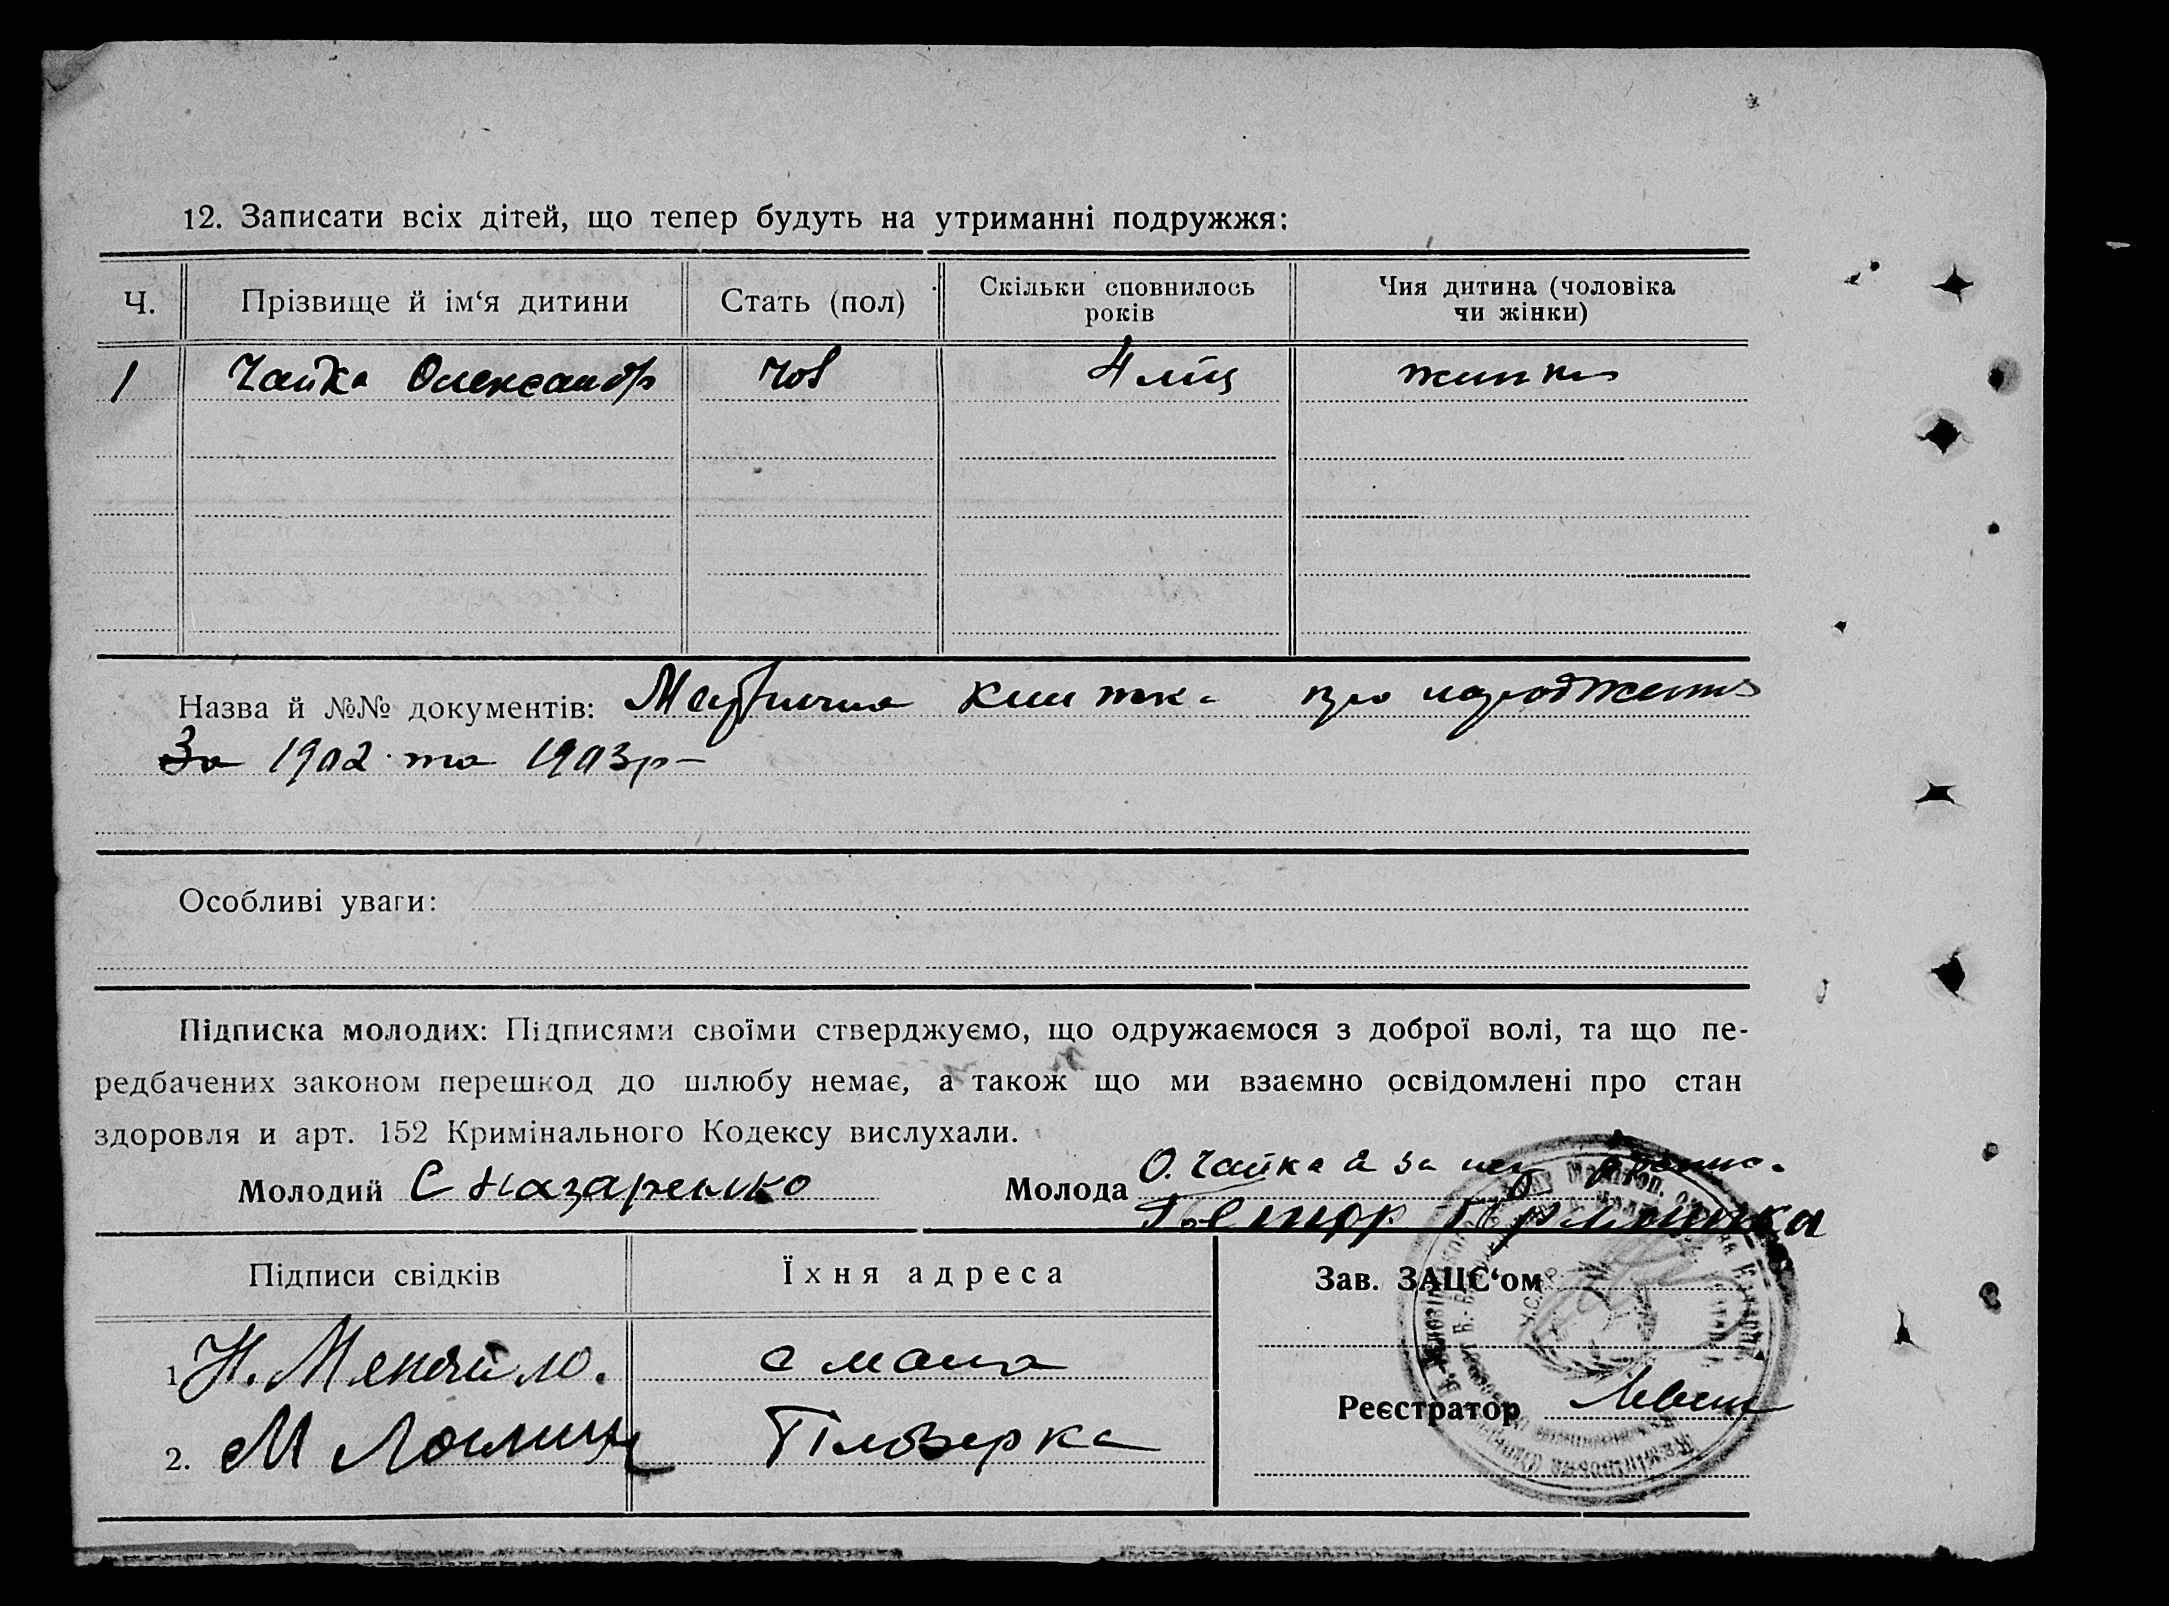 12. Записати всіх дітей, що тепер будуть на утриманні подружжя:
Ч. Прізвище й ім‘я дитини Стать (пол) Скільки сповнилось років Чия дитина (чоловіка чи жінки)
1 Чайка Олександр чов 4 міц жинки
Назва й №№ документів: Метрична книжка про народження
За 1902 та 1903р
Особливі уваги:
Підписка молодих: Підписями своїми стверджуємо, що одружаємося з доброї волі, та що пе-
редбачених законом перешкод до шлюбу немає, а також що ми взаємно освідомлені про стан
здоровля и арт. 152 Кримінального Кодексу вислухали.
Молодий С Назаренко Молода О. Чайка а за неї
Підписи свідків Їхня адреса Зав. ЗАЦС‘ом
1 Н. Меняйло.
2. М
Реєстратор